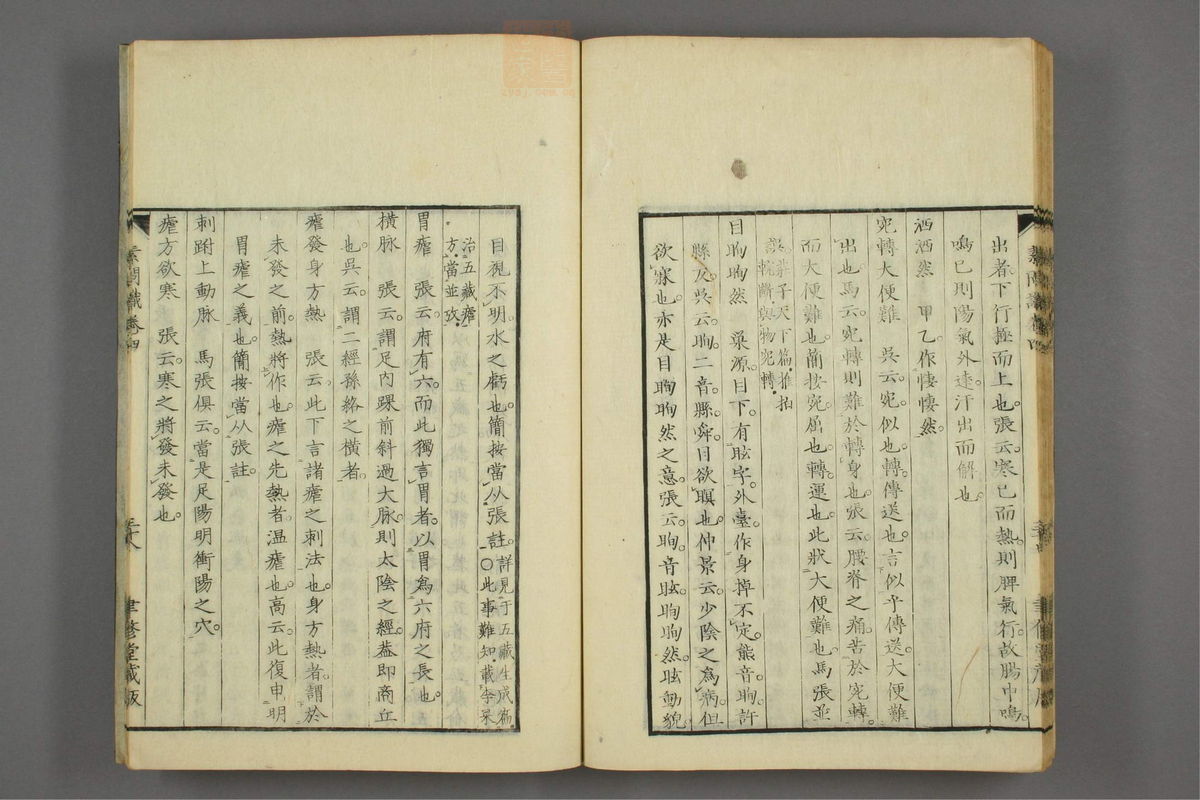 出者下行極而上也張云寒已而熱則脾氣行故腸中鳴
鳴已則陽氣外達汗出而解也
洒洒然　甲乙作悽悽然
宛轉大便難　吳云宛似也轉傳送也言似乎傳送大便難
出也馬云宛轉則難於轉身也張云腰脊之痛苦於宛轉
而大便難也簡按宛屈也轉運也此狀大便難也馬張並
誤莊子天下篇推拍
輐斷與物宛轉
目眴眴然　巢源目下有眩字外臺作身掉不定熊音眴許
縣反吳云眴二音縣舜目欲瞑也仲景云少陰之為病但
欲寐也亦是目眴眴然之意張云眴音眩眴眴然眩動貌
目視不明水之虧也簡按當从張註
詳見于五藏生成篇
○此事難知載李杲
治五藏瘧
方當並攷
胃瘧　張云府有六而此獨言胃者以胃為六府之長也
橫脉　張云謂足內踝前斜過大脉則太陰之經蓋即商丘
也吳云謂二經孫絡之橫者
瘧發身方熱　張云此下言諸瘧之刺法也身方熱者謂於
未發之前熱將作也瘧之先熱者温瘧也高云此復申明
胃瘧之義也簡按當从張註
刺跗上動脉　馬張俱云當是足陽明衝陽之穴
瘧方欲寒　張云寒之將發未發也
素問識卷四
三十八
聿修堂藏版